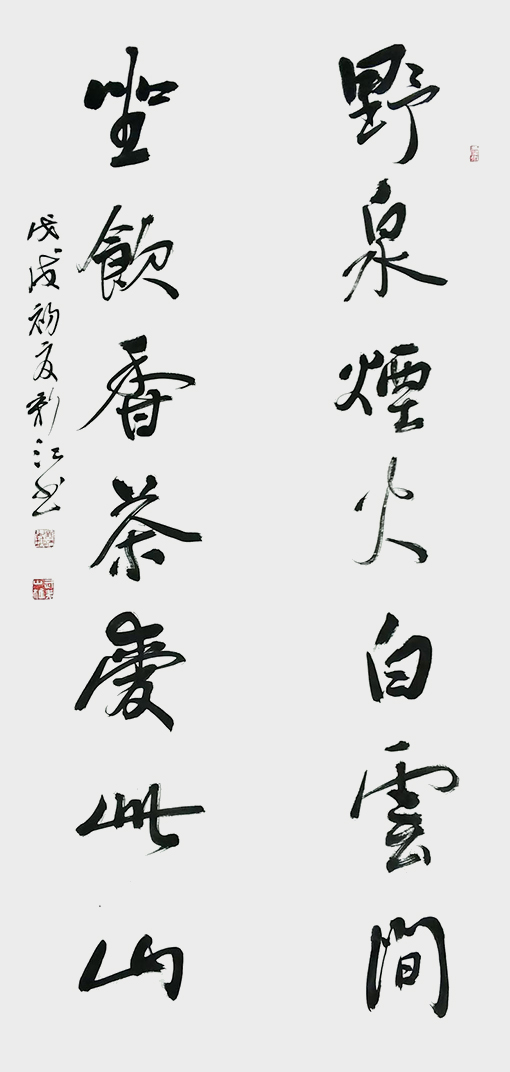 野泉煙火白雲間
坐飲香茶愛此山
戊戌初夏新江书